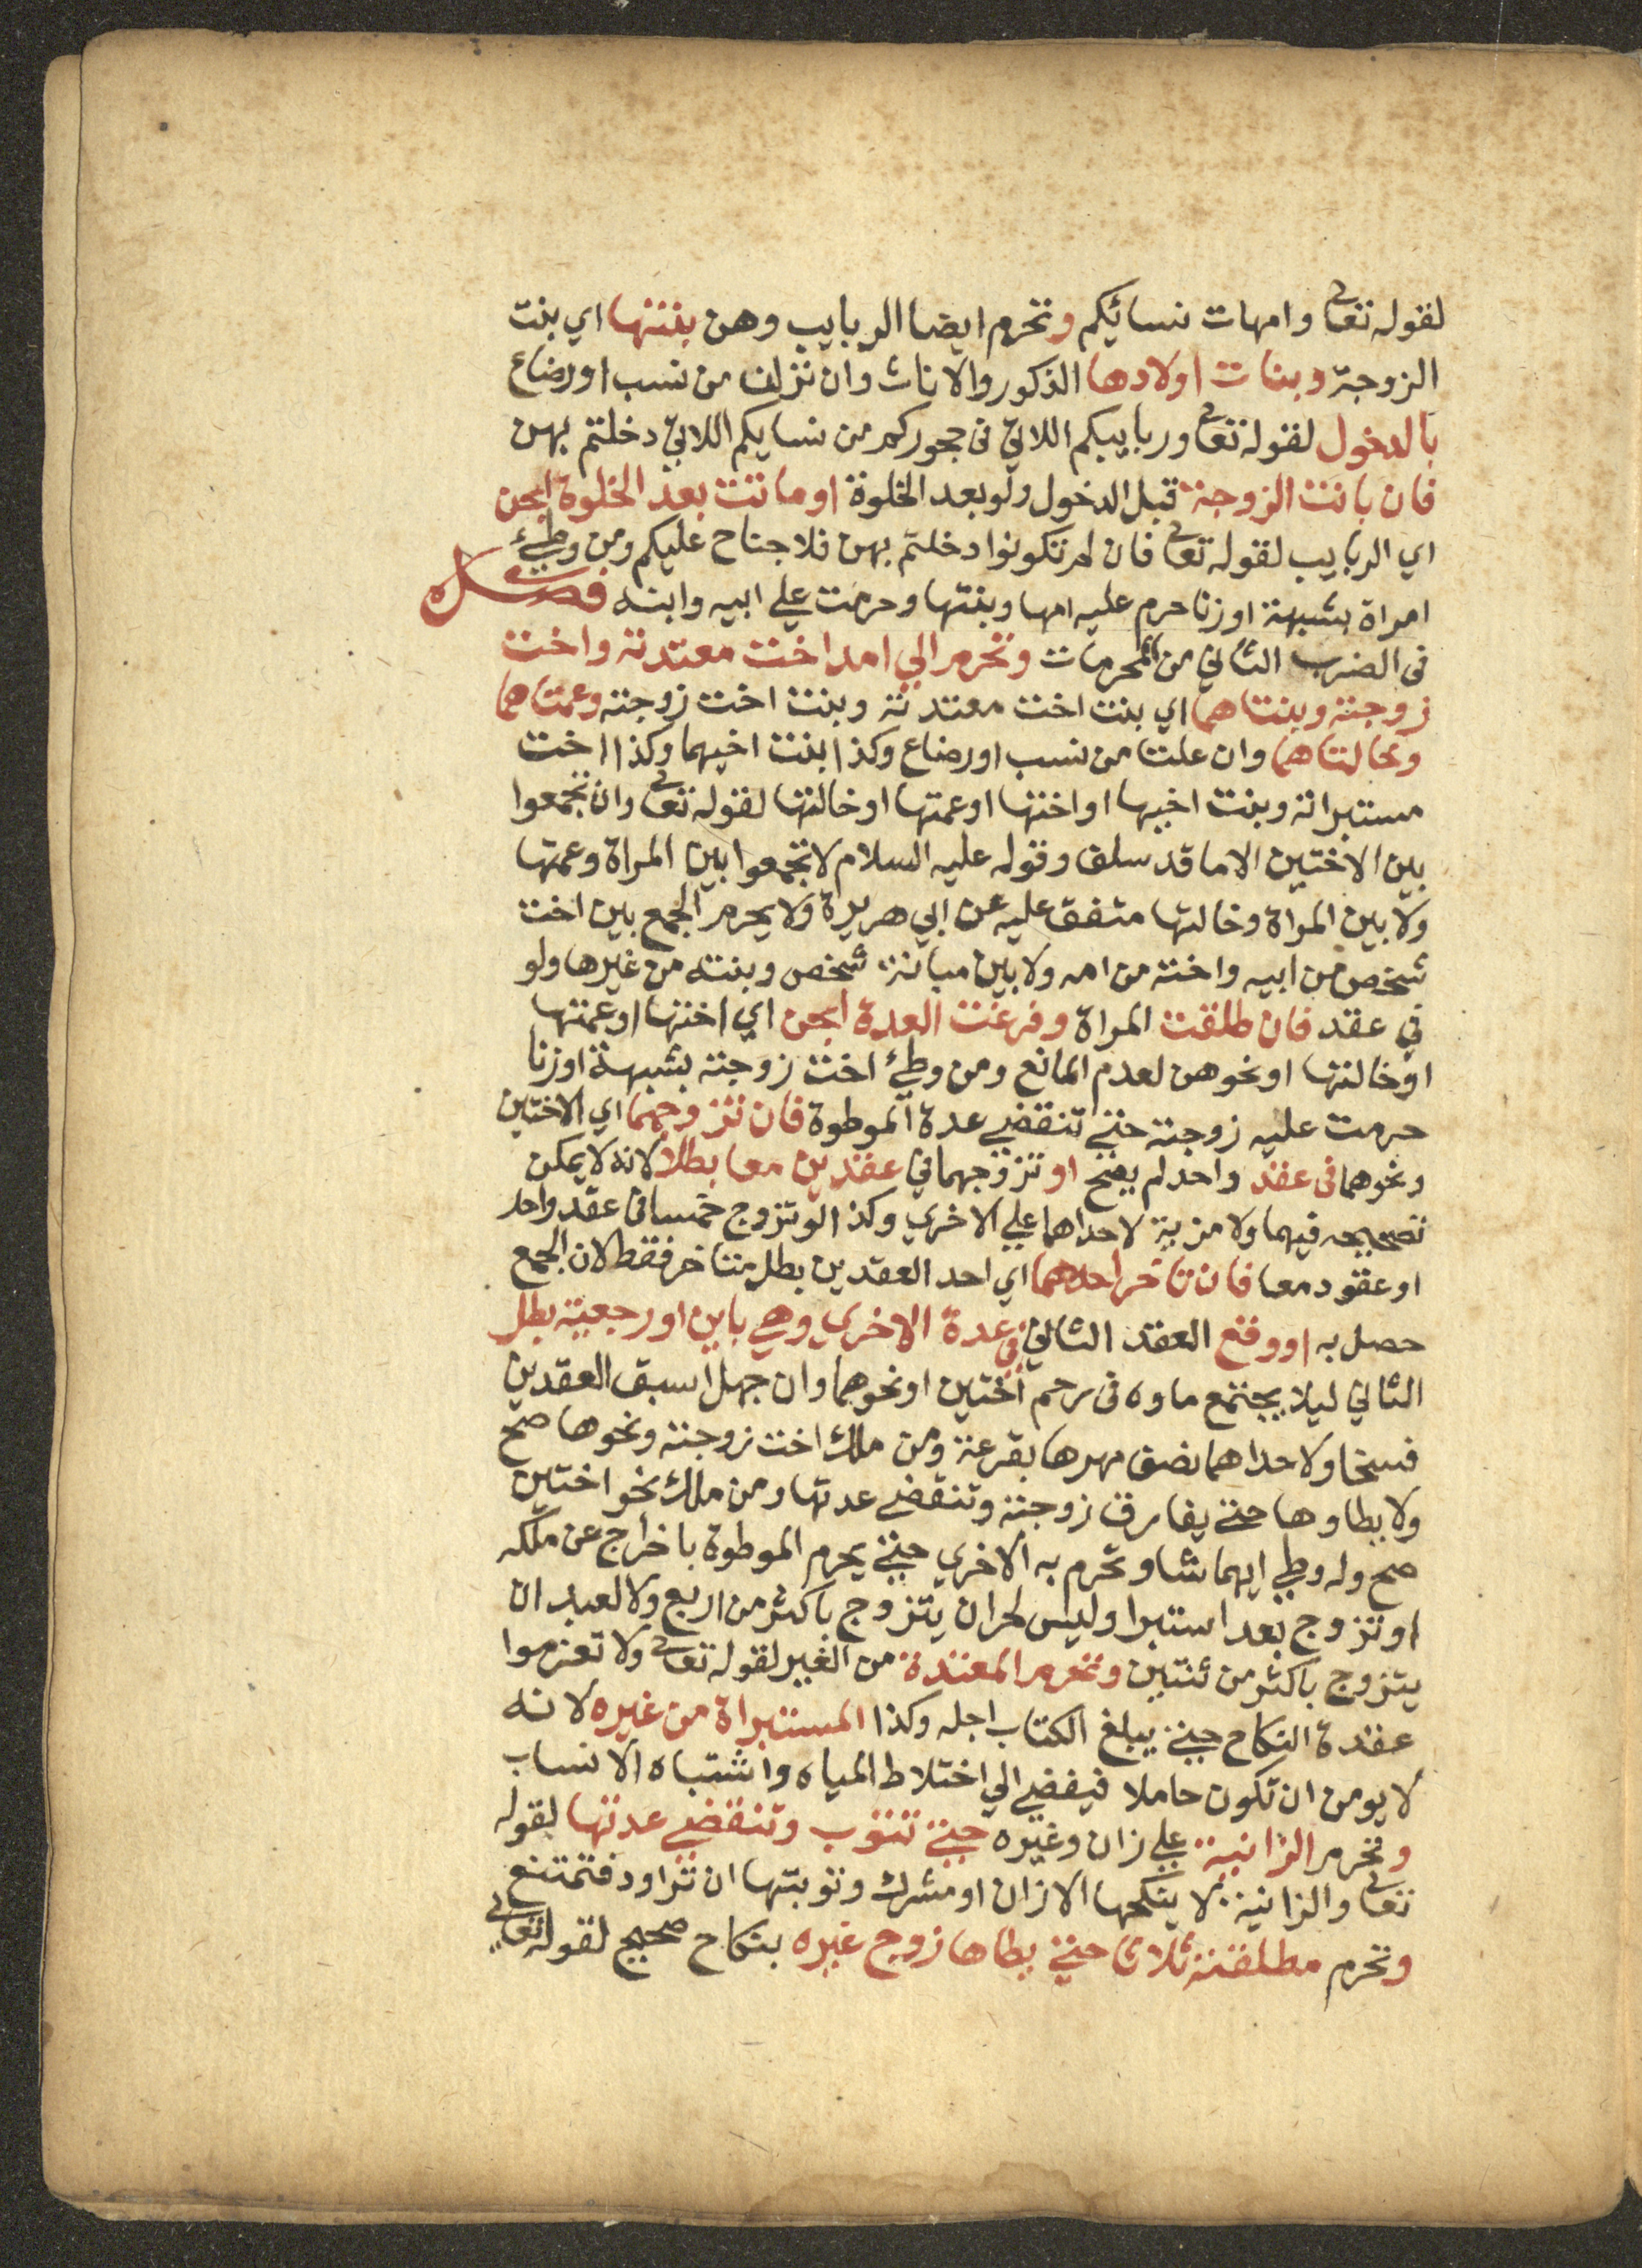 لقوله تعالى وامهات نسائيكم وتحرم ايضا الربايب وهن بنتها اي بنت
الزوجة وبنات اولادها الذكور والاناث وان نزلن من نسب او رضاع
بالدخول لقوله تعالى وربايبكم اللاتي فى حجوركم من نسايكم اللاتي دخلتم بهن
فان بانت الزوجة قبل الدخول ولو بعد الخلوة او ماتت بعد الخلوة ابحن
اي الربايب لقوله تعالى فان لم تكونوا دخلتم بهن فلا جناح عليكم ومن وطئ
امراة بشبهة او زنا حرم عليه امها وبنتها وحرمت علي ابيه وابنه فصل
فى الضرب الثاني من المحرمات وتحرم الي امد اخت معتدته واخت
زوجته وبنتاهما اي بنت اخت معتدته وبنت اخت زوجته وعمتاهما
وخالتاهما وان علتا من نسب او رضاع وكذا بنت اخيهما وكذا اخت
مستبراته وبنت اخيها او اختها او عمتها او خالتها لقوله تعالى وان تجمعوا
بين الاختين الا ما قد سلف وقوله عليه السلام لا تجمعوا بين المراة وعمتها
ولا بين المراة وخالتها متفق عليه عن ابي هريرة ولا يحرم الجمع بين اخت
شخص من ابيه واخته من امه ولا بين مبانة شخص وبنته من غيرها ولو
في عقد فان طلقت المراة وفرغت العدة ابحن اي اختها او عمتها
او خالتها او نحوهن لعدم المانع ومن وطئ اخت زوجته بشبهة او زنا
حرمت عليه زوجته حتى تنقضي عدة الموطوة فان تزوجهما اي الاختين
ونحوهما فى عقد واحد لم يصح او تزوجهما في عقدين معا بطلا لانه لا يمكن
تصحيحه فيهما ولا مزية لاحداهما علي الاخري وكذا لو تزوج خمسا فى عقد واحد
او عقود معا فان تاخر احدهما اي احد العقدين بطل متاخر فقط لان الجمع
حصل به او وقع العقد الثاني في عدة الاخري وهي باين او رجعية بطل
الثاني ليلا يجتمع ماوه فى رحم اختين او نحوهما وان جهل اسبق العقدين
فسخا ولاحداهما نصف مهرها بقرعة ومن ملك اخت زوجته ونحوها صح
ولا يطاوها حتى يفارق زوجته وتنقضي عدتها ومن ملك نحو اختين
صح وله وطي ايهما شا وتحرم به الاخري حتى يحرم الموطوة باخراج عن ملكه
او تزوج بعد استبرا وليس لحر ان يتزوج باكثر من اربع ولا لعبد ان
يتزوج باكثر من ثنتين وتحرم المعتدة من الغير لقوله تعالى ولا تعزموا
عقدة النكاح حتى يبلغ الكتاب اجله وكذا المستبراة من غيره لانه
لا يومن ان تكون حاملا فيفضي الي اختلاط المياه واشتباه الانساب
وتحرم الزانية علي زان وغيره حتى تتوب وتنقضي عدتها لقوله
تعالى والزانية لا ينكحها الا زان او مشرك وتوبتها ان تراود فتمتنع
وتحرم مطلقته ثلاثا حتى يطاها زوج غيره بنكاح صحيح لقوله تعالى